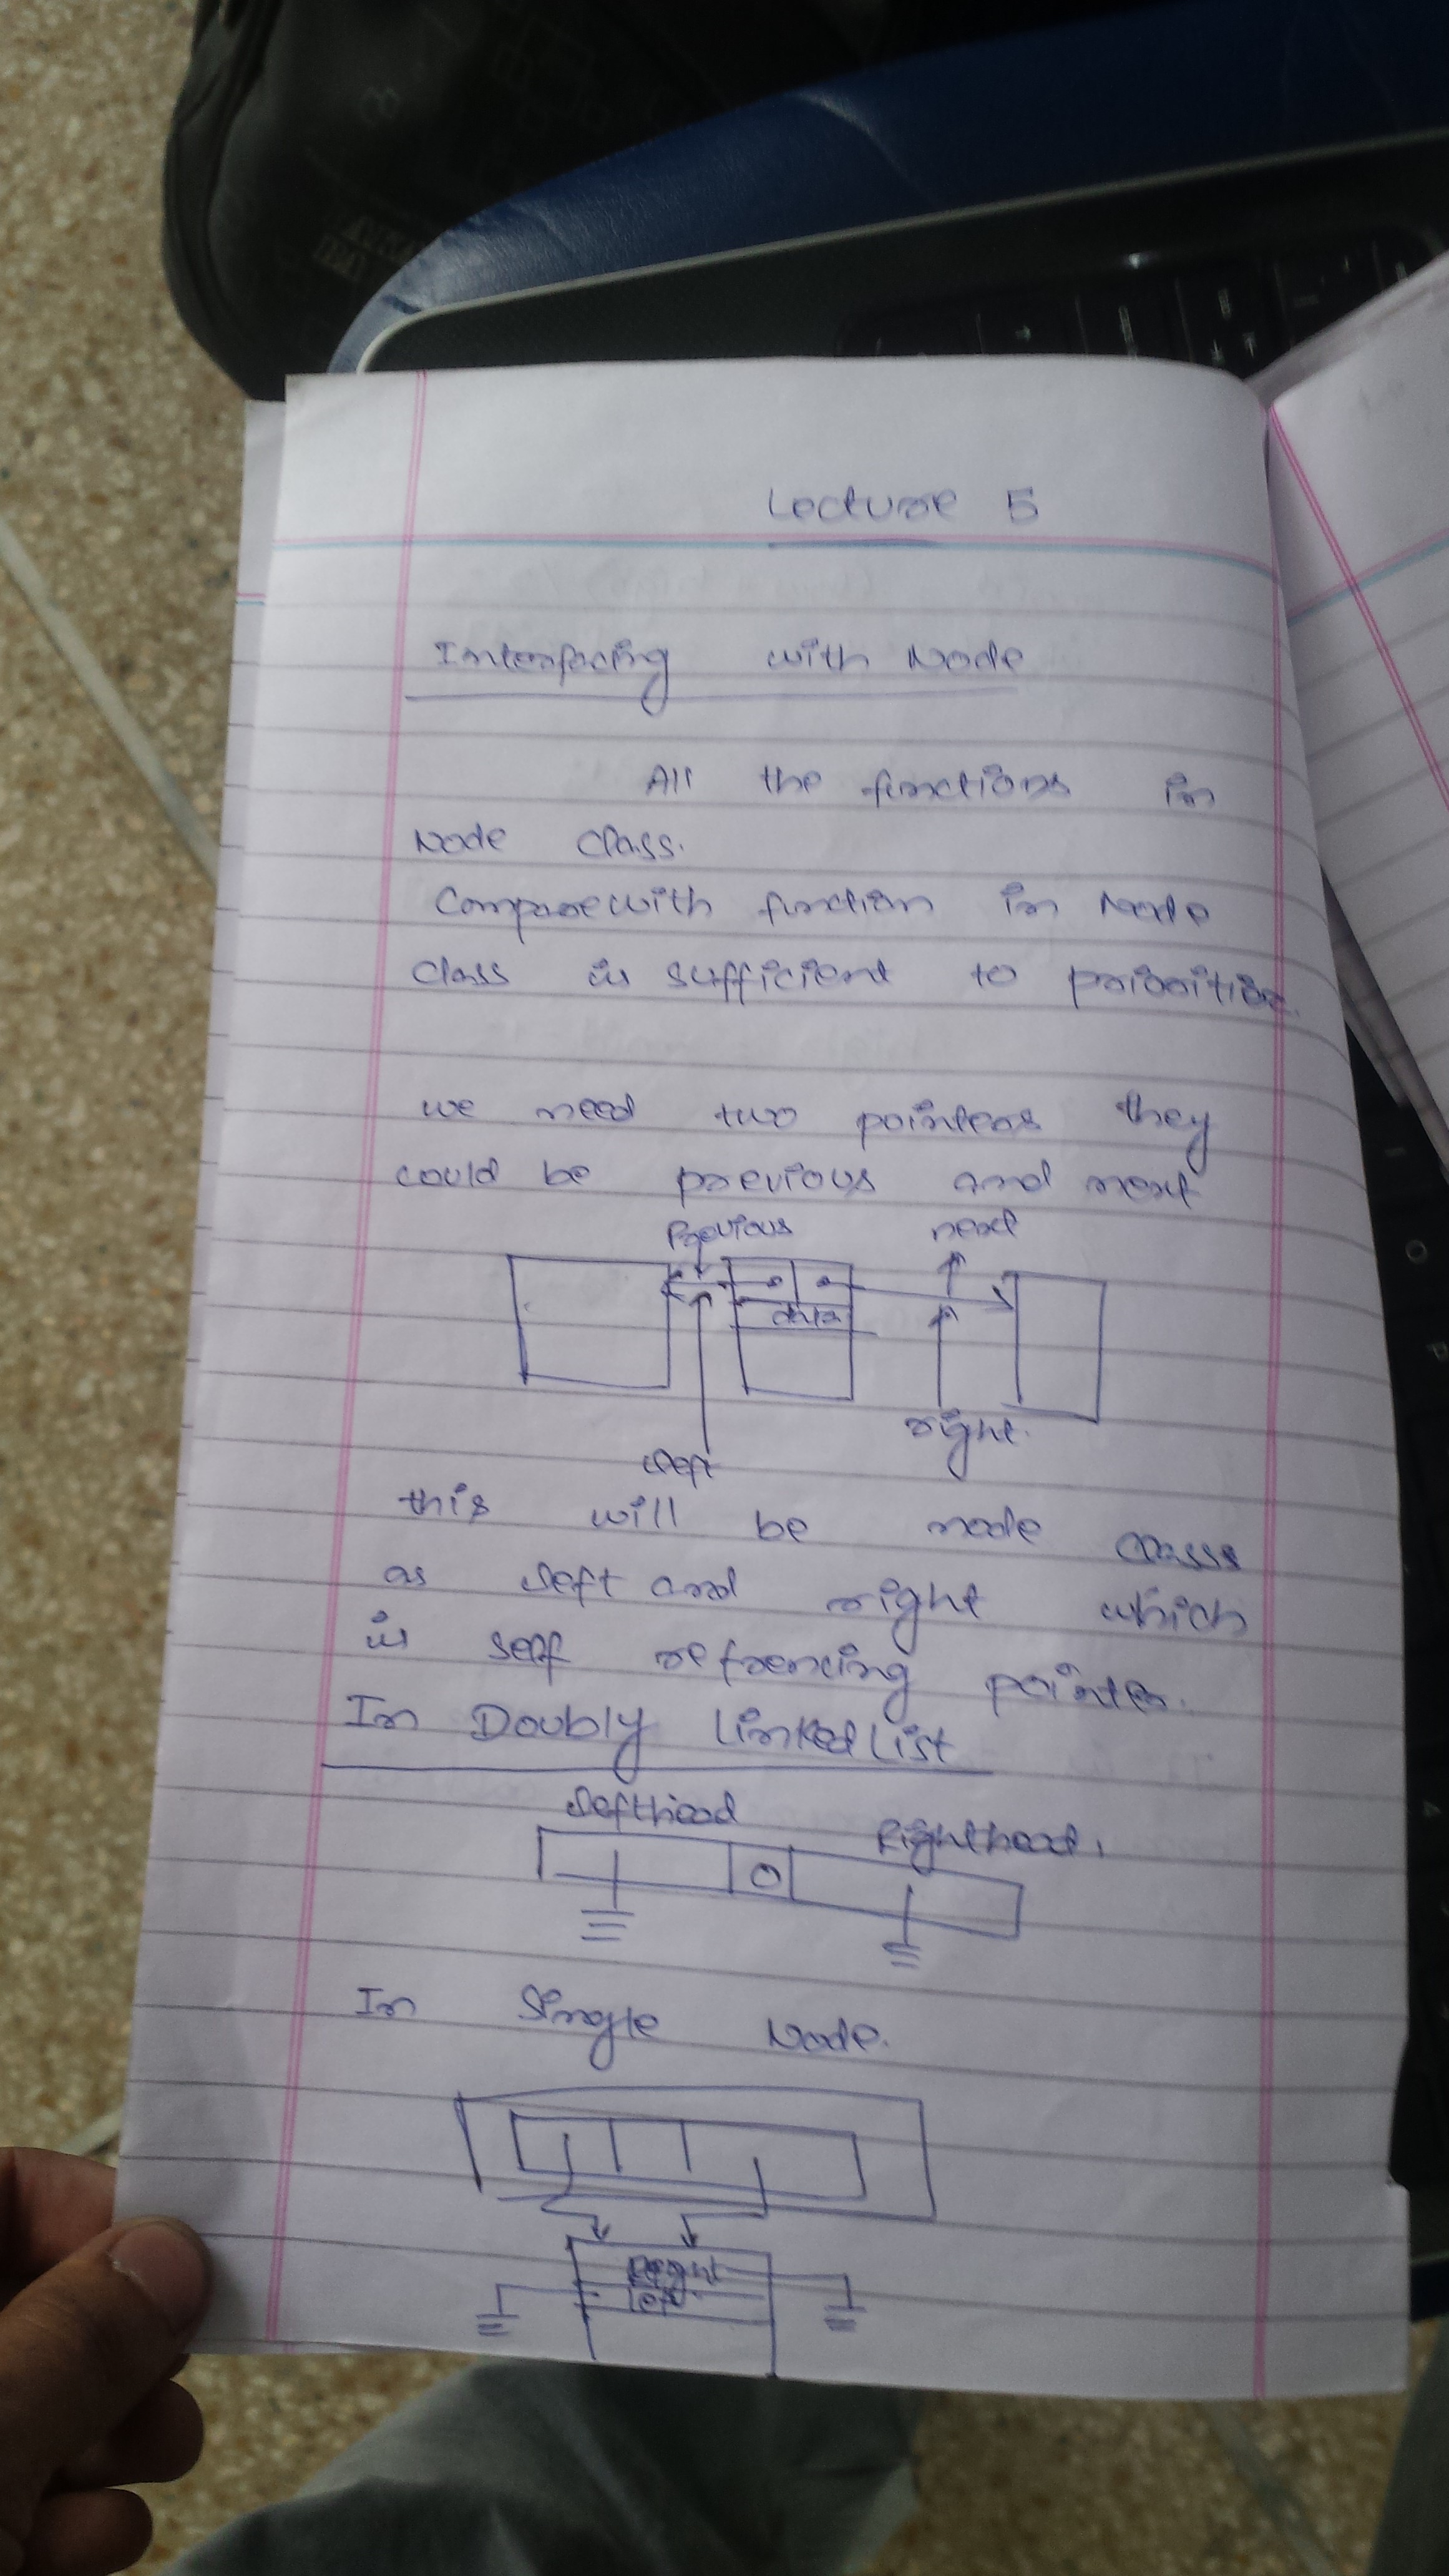 Lecture 5
Interfacing with Node
All the functions in
Node Class.
Comparewith function in Node
class is sufficient to prioritise.
we need two pointers they
could be previous and next
Previous next
data
right.
left
this will be node classs
as left and right which
is self refrencing pointer.
In Doubly Linked List
lefthead
Righthead.
0
In Single Node.
Right
left